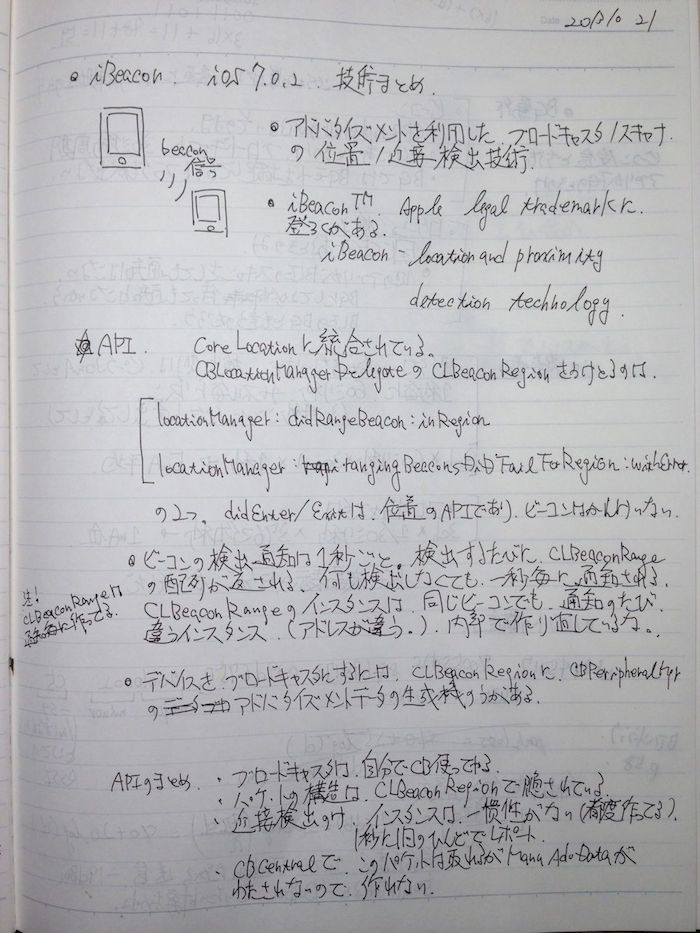 2013 10 21
• iBeacon. iOS 7.0.2 技術まとめ.
beacon信号
• アドバタイズメントを利用した ブロードキャスタ/スキャナ
の 位置/近接検出技術.
• iBeacon™. Apple legal trademarkに
登ろくがある.
iBeacon - location and proximity
detection technology.
☆API. Core Locationに統合されている。
CBLocationManager Delegateの CLBeaconRegionをうけとるのは.
locationManager: didRangeBeacon: inRegion
locationManager: rangingBeaconsDidFailForRegion: withError.
の2つ。 didEnter/Exitは、位置のAPIであり、ビーコンはかんけいない.
• ビーコンの検出通知は1秒ごと。検出するたびに、CLBeaconRange
の配列が返される。何も検出しなくても、一秒毎に通知される.
CLBeaconRangeのインスタンスは、同じビーコンでも、通知のたび
違うインスタンス.(アドレスが違う。). 内部で作り直しているな。
注!
CLBeaconRangeは
通知毎に作ってる.
• デバイスを ブロードキャスタにするには、CLBeaconRegionに、CBPeripheral
の アドバタイズメントデータの生成きのうがある.
APIのまとめ. ・ブロードキャスタは、自分でCB使ってやる.
・パケットの構造は、CLBeaconRegionで隠されている.
・近接検出のみ、インスタンスは、一慣性がない(都度作ってる).
1秒に1回のひんどでレポート.
・CBCentralで、このパケットは取れるがManu Adv Dataが
わたされないので、作れない.